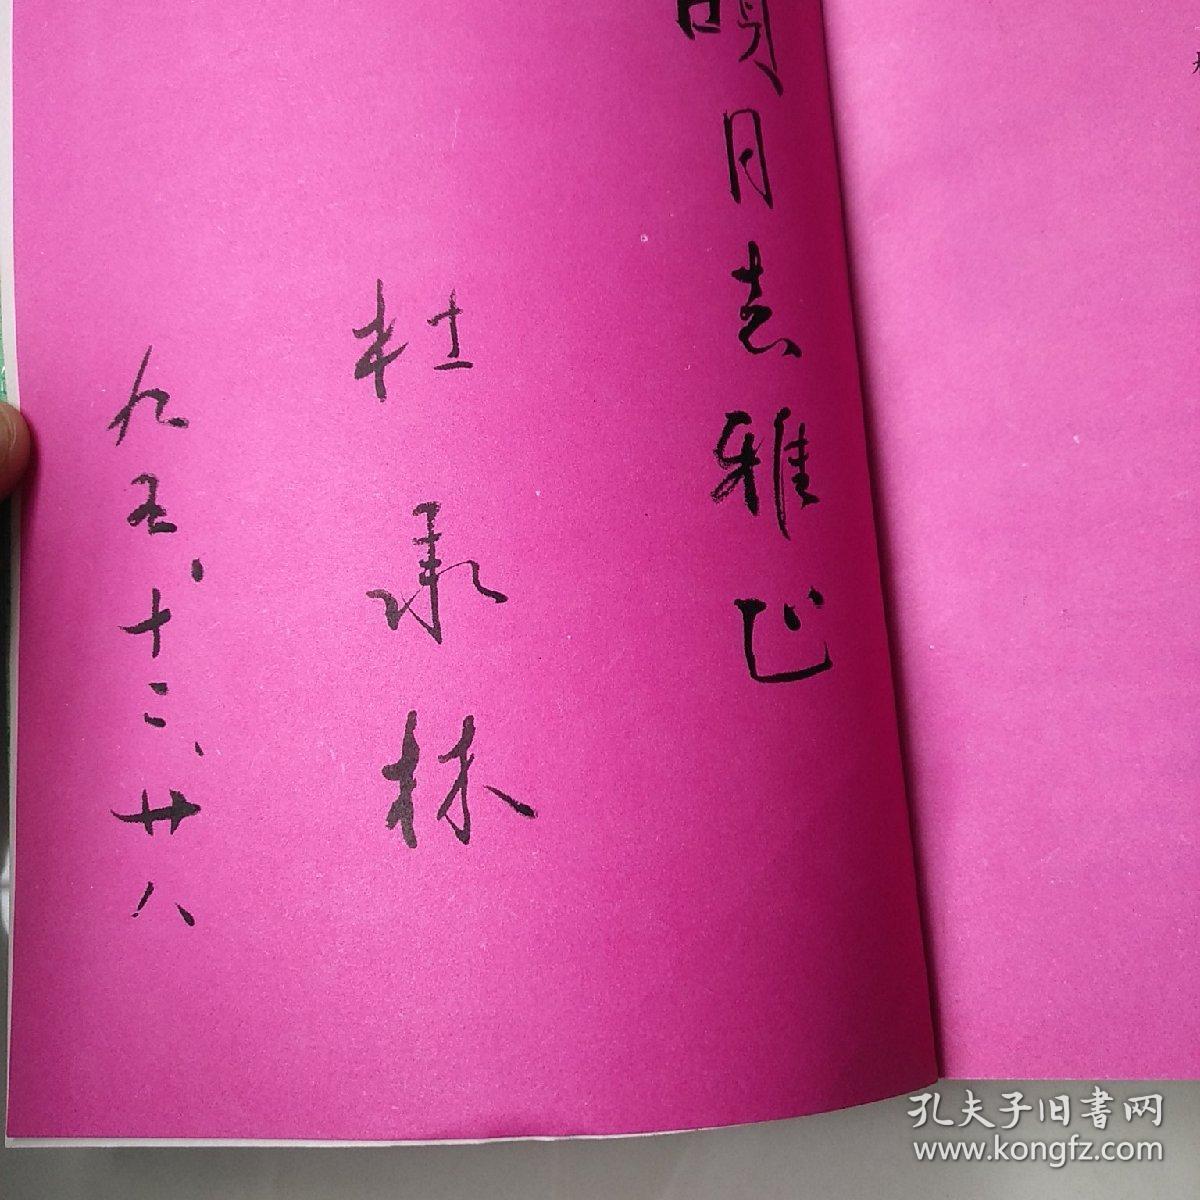 明月志雅正
杜承林
九五、十二、廿八
孔夫子旧書网
www.kongfz.com